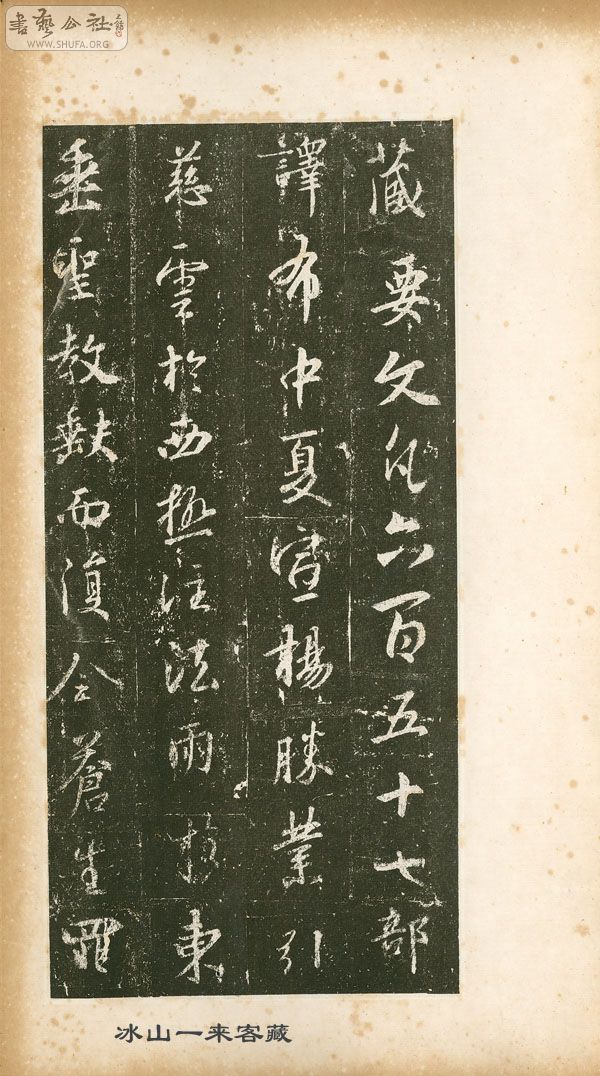 書藝公社
WWW.SHUFA.ORG
藏要文凡六百五十七部
譯布中夏宣楊勝業引
慈雲於西極注法雨於東
垂聖教缺而復全蒼生罪
冰山一来客藏